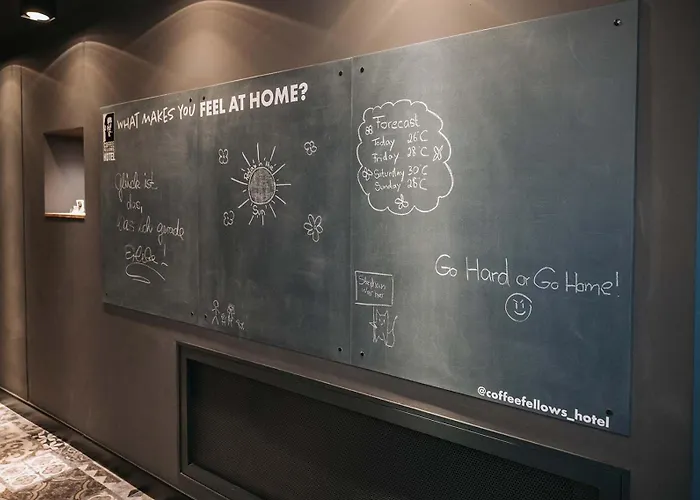 WHAT MAKES YOU FEEL AT HOME?
HOTEL
Glück ist
das,
was ich gerade
Erlebe!
Sun
Forecast
Today 26°C
Friday 28°C
Saturday 30°C
Sunday 26°C
Stephan
Werner
Go Hard or Go Home!
@coffeefellows_hotel